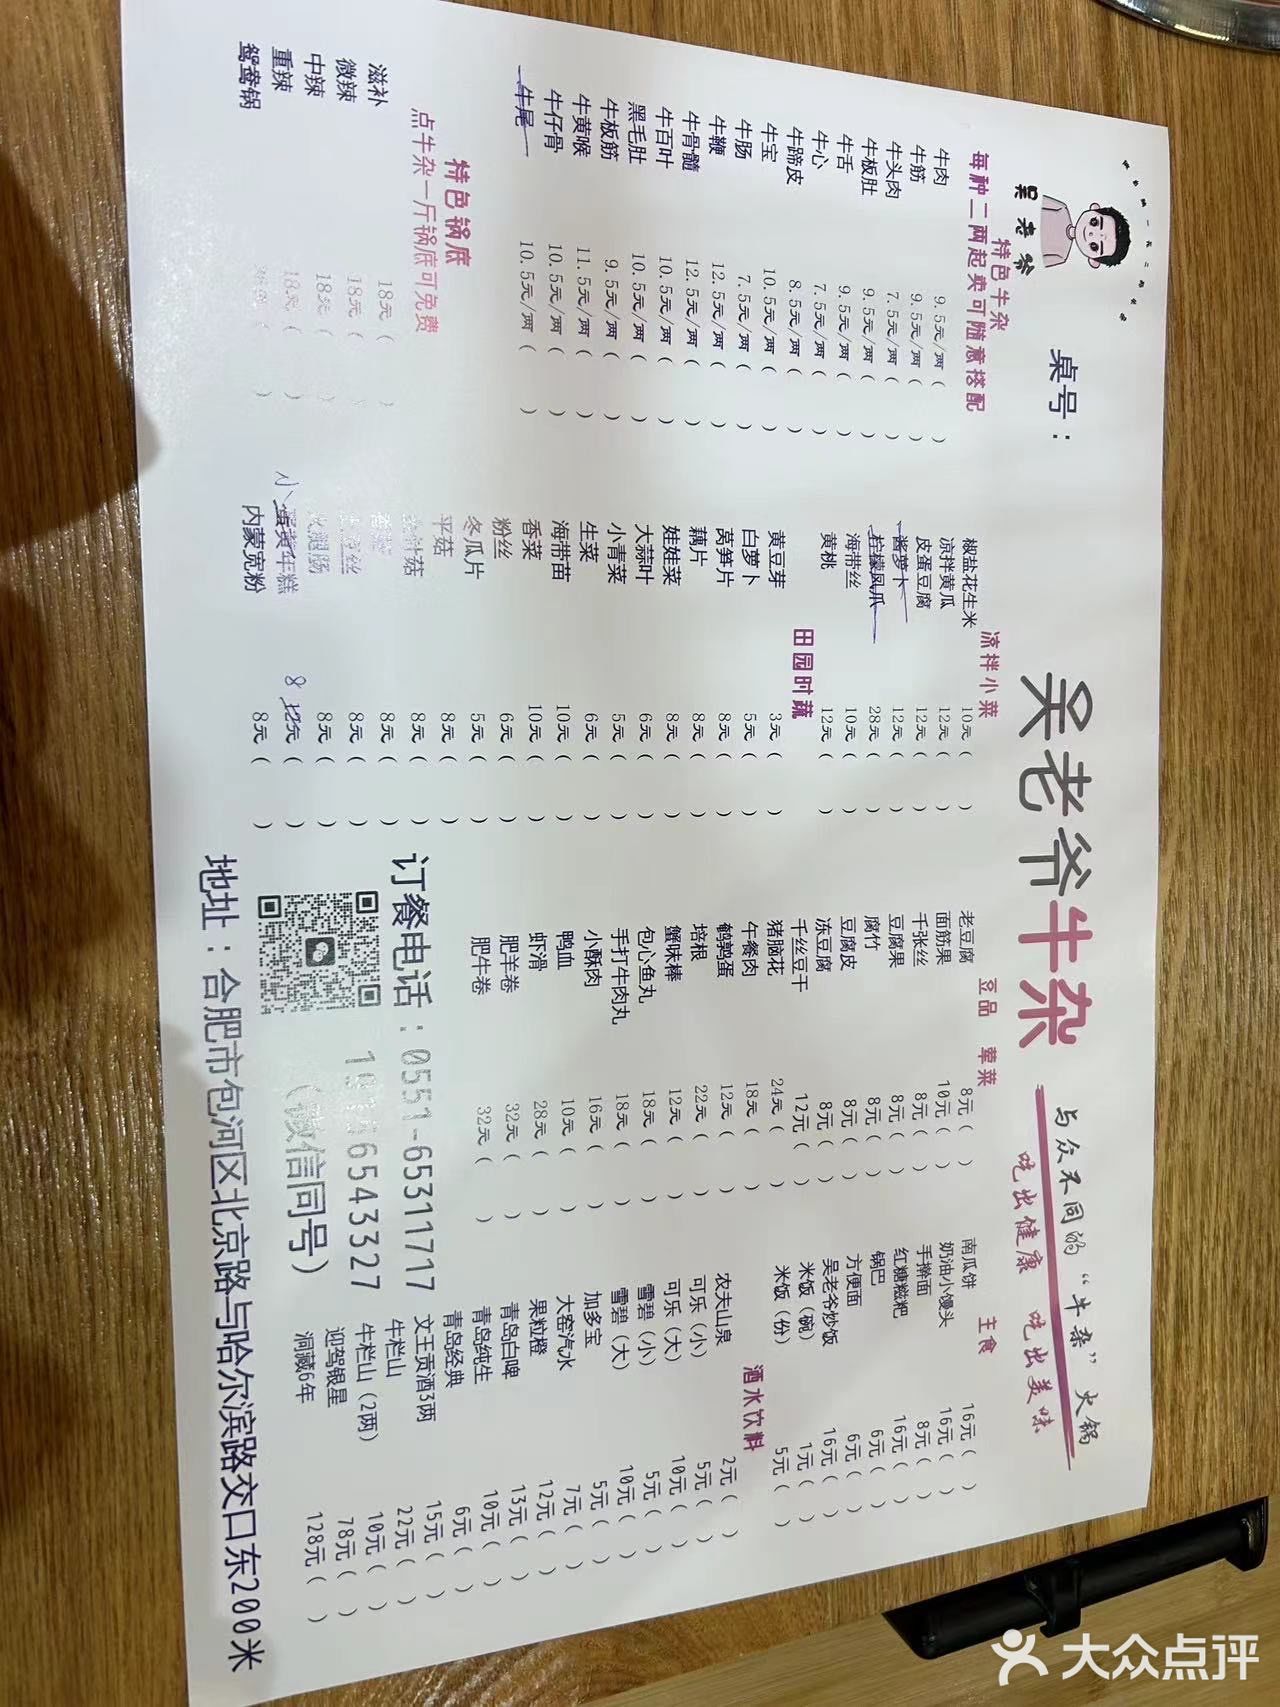 吴老爷
桌号：
吴老爷牛杂
与众不同的“牛杂”火锅
吃出健康 吃出美味
特色牛杂
每种二两起卖可随意搭配
牛肉 9.5元/两（ ）
牛筋 9.5元/两（ ）
牛头肉 7.5元/两（ ）
牛板肚 9.5元/两（ ）
牛舌 9.5元/两（ ）
牛心 7.5元/两（ ）
牛蹄皮 8.5元/两（ ）
牛宝 10.5元/两（ ）
牛肠 7.5元/两（ ）
牛鞭 12.5元/两（ ）
牛骨髓 12.5元/两（ ）
牛百叶 10.5元/两（ ）
黑毛肚 10.5元/两（ ）
牛板筋 9.5元/两（ ）
牛黄喉 11.5元/两（ ）
牛仔骨 10.5元/两（ ）
牛尾 10.5元/两（ ）
特色锅底
点牛杂一斤锅底可免费
滋补 18元（ ）
微辣 18元（ ）
中辣 18元（ ）
重辣 18元（ ）
鸳鸯锅
凉拌小菜
椒盐花生米 10元（ ）
凉拌黄瓜 12元（ ）
皮蛋豆腐 12元（ ）
酱萝卜 12元（ ）
柠檬凤爪 28元（ ）
海带丝 10元（ ）
黄桃 12元（ ）
田园时蔬
黄豆芽 3元（ ）
白萝卜 5元（ ）
莴笋片 8元（ ）
藕片 8元（ ）
娃娃菜 8元（ ）
大蒜叶 6元（ ）
小青菜 5元（ ）
生菜 6元（ ）
海带苗 10元（ ）
香菜 10元（ ）
粉丝 6元（ ）
冬瓜片 5元（ ）
平菇 8元（ ）
金针菇 8元（ ）
8元（ ）
丝 8元（ ）
火腿肠 8元（ ）
小蛋黄年糕 8 12元（ ）
内蒙宽粉 8元（ ）
豆品 荤菜
老豆腐 8元（ ）
面筋果 10元（ ）
千张丝 8元（ ）
豆腐果 8元（ ）
腐竹 8元（ ）
豆腐皮 8元（ ）
冻豆腐 8元（ ）
千丝豆干 12元（ ）
猪脑花 24元（ ）
午餐肉 18元（ ）
鹌鹑蛋 12元（ ）
培根 22元（ ）
蟹味棒 12元（ ）
包心鱼丸 18元（ ）
手打牛肉丸 18元（ ）
小酥肉 16元（ ）
鸭血 10元（ ）
虾滑 28元（ ）
肥羊卷 32元（ ）
肥牛卷 32元（ ）
主食
南瓜饼 16元（ ）
奶油小馒头 16元（ ）
手擀面 8元（ ）
红糖糍粑 16元（ ）
锅巴 6元（ ）
方便面 6元（ ）
吴老爷炒饭 16元（ ）
米饭（碗） 1元（ ）
米饭（份） 5元（ ）
酒水饮料
农夫山泉 2元（ ）
可乐（小） 5元（ ）
可乐（大） 10元（ ）
雪碧（小） 5元（ ）
雪碧（大） 10元（ ）
加多宝 5元（ ）
大窑汽水 7元（ ）
果粒橙 12元（ ）
青岛白啤 13元（ ）
青岛纯生 10元（ ）
青岛经典 6元（ ）
文王贡酒3两 15元（ ）
牛栏山 22元（ ）
牛栏山（2两） 10元（ ）
迎驾银星 78元（ ）
洞藏6年 128元（ ）
订餐电话：0551-65311717
6543327
（微信同号）
地址：合肥市包河区北京路与哈尔滨路交口东200米
大众点评